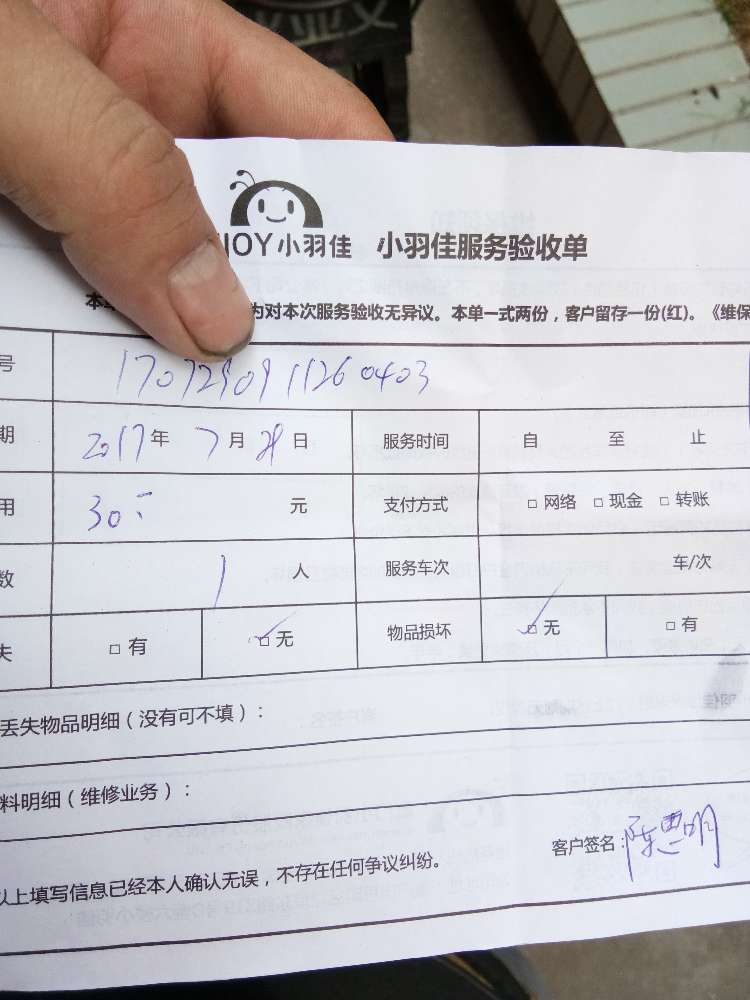 JOY小羽佳 小羽佳服务验收单
为对本次服务验收无异议。本单一式两份，客户留存一份(红)。《维保
号 17072909111260403
期 2017年 7月 29日 服务时间 自 至 止
用 30 元 支付方式 □网络 □现金 □转账
数 1 人 服务车次 车/次
失 □有 □无 物品损坏 □无 □有
丢失物品明细（没有可不填）：
料明细（维修业务）：
客户签名：陈思明
以上填写信息已经本人确认无误，不存在任何争议纠纷。